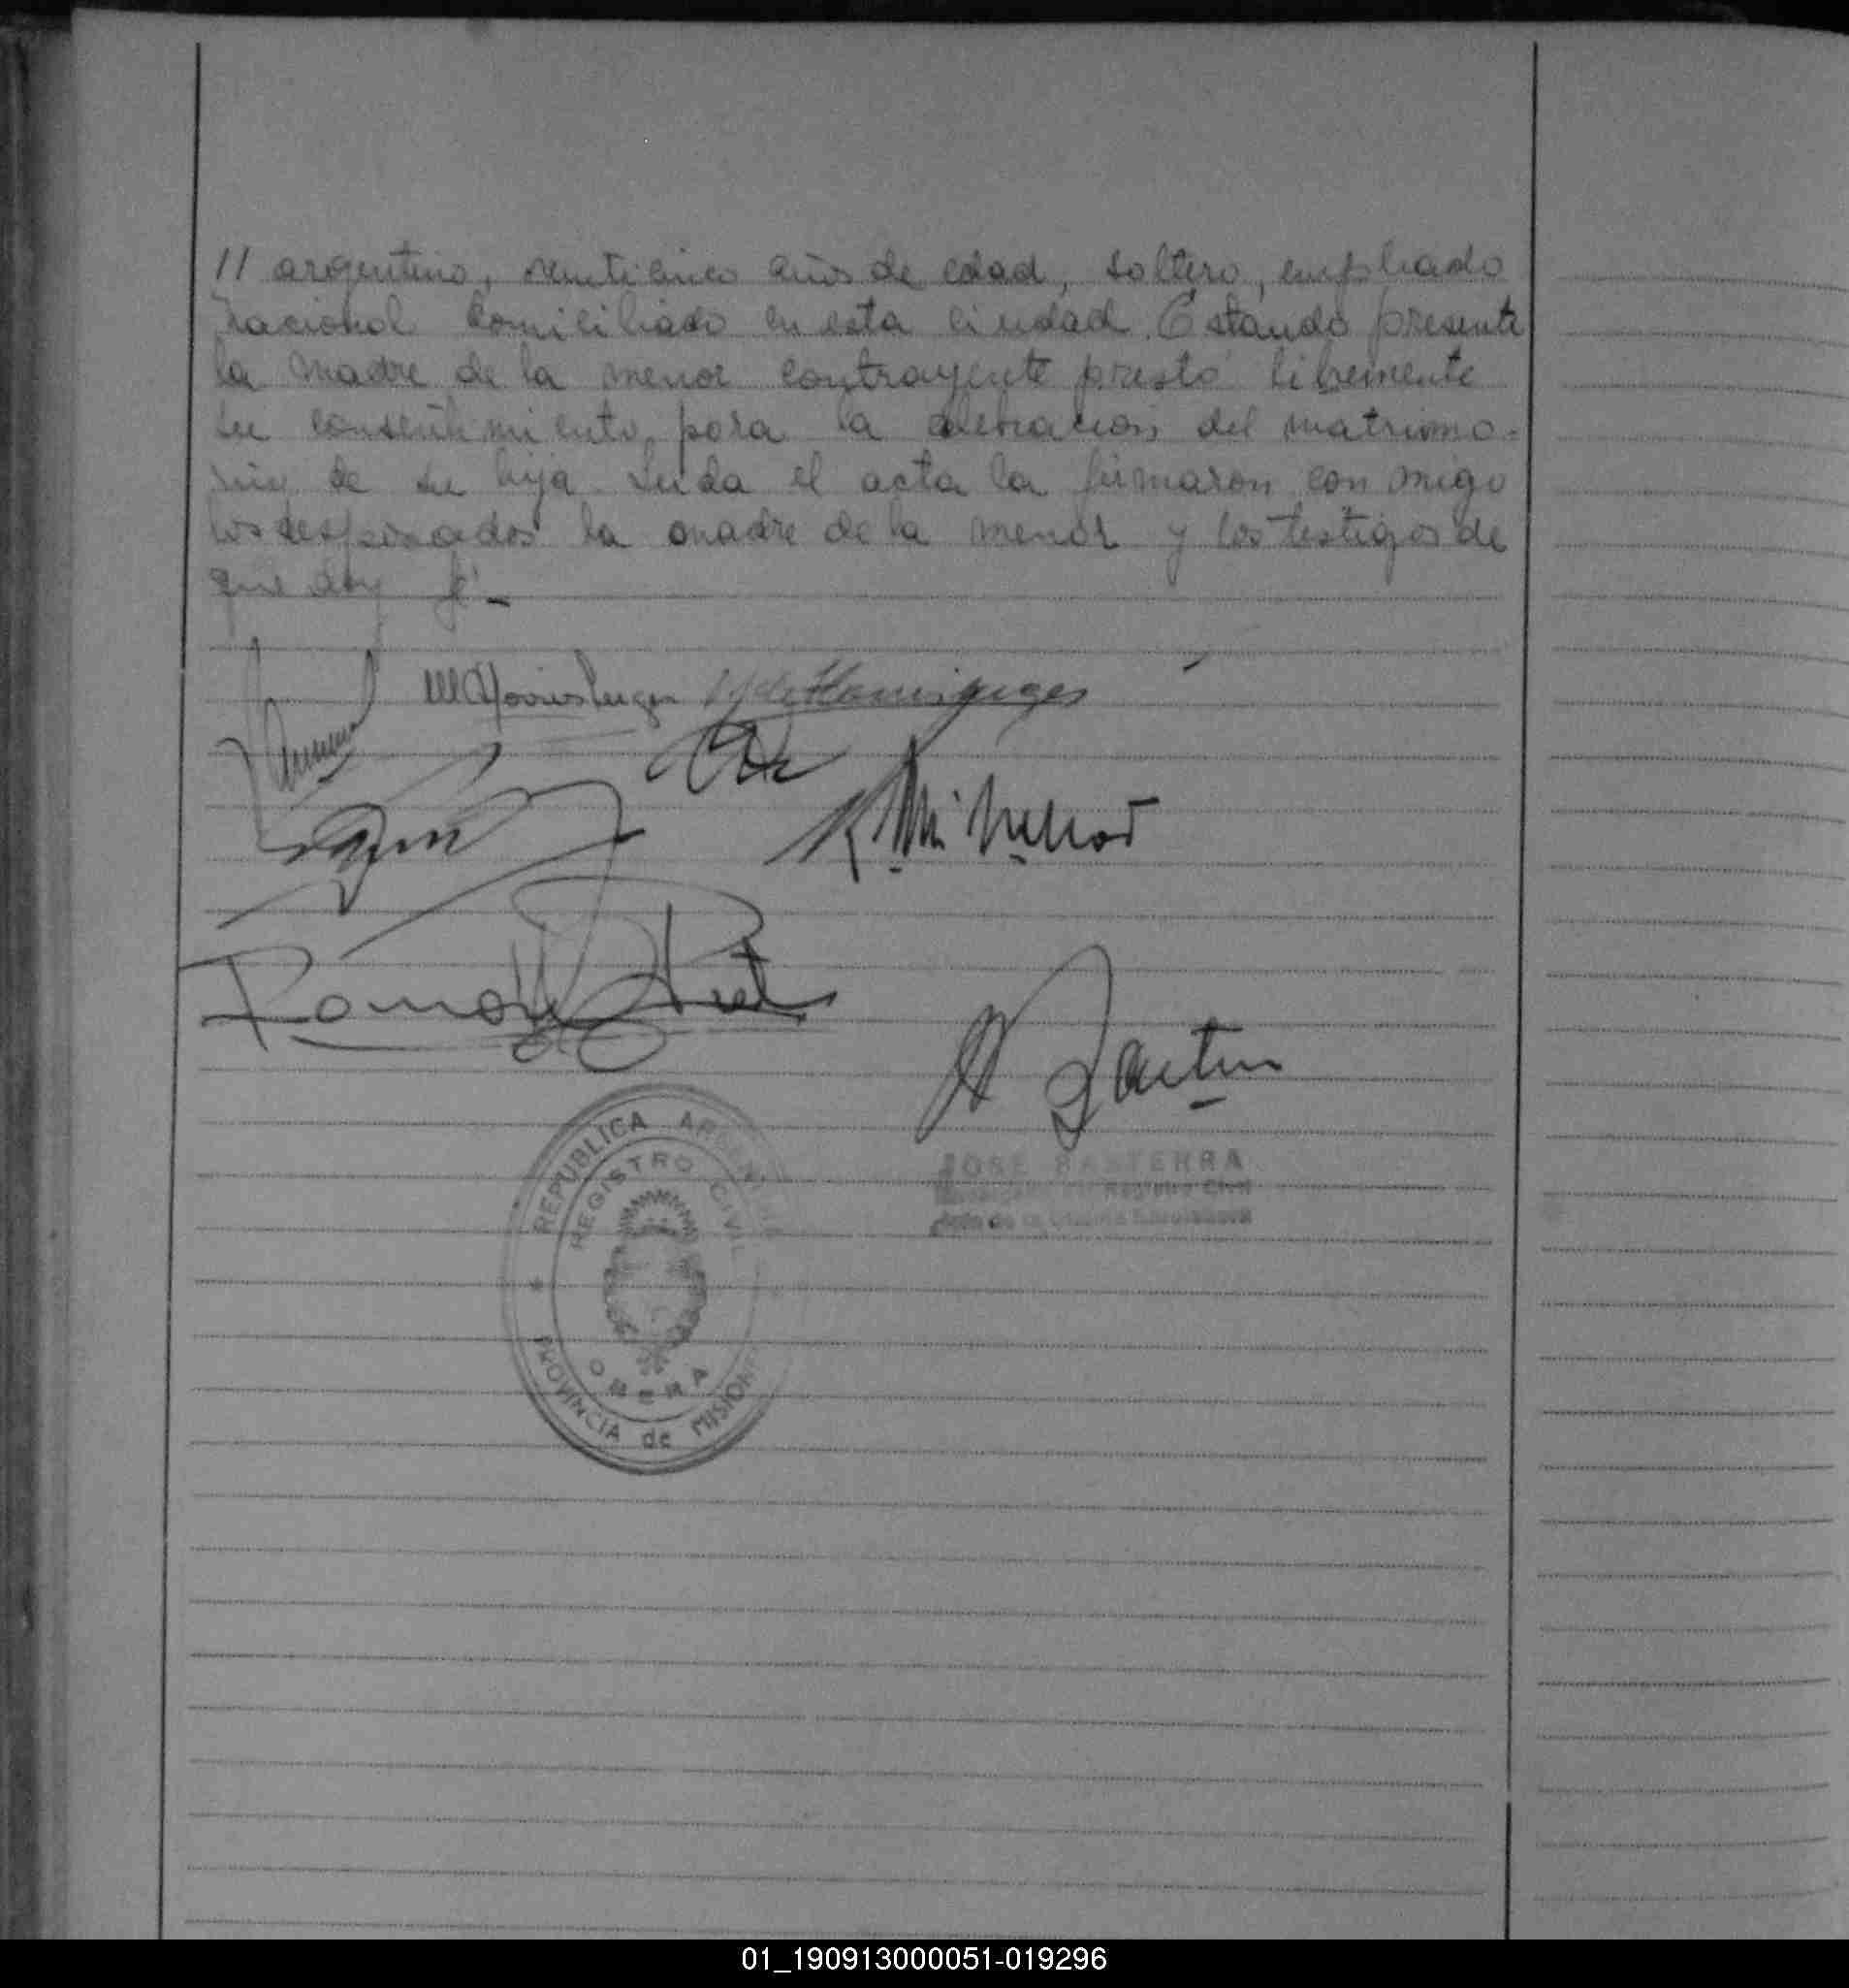 // argentino, veinticinco años de edad, soltero, empleado
nacional domiciliado en esta ciudad. Estando presente
la madre de la menor contrayente prestó libremente
su consentimiento para la celebración del matrimo-
nio de su hija. Leida el acta la firmaron con migo
los desposados la madre de la menor y los testigos de
que doy fé.-
Ramón
REPUBLICA ARGENTINA
REGISTRO CIVIL
OBERA
PROVINCIA de MISIONES
JOSE BASTERRA
Encargado del Registro Civil
01_190913000051-019296